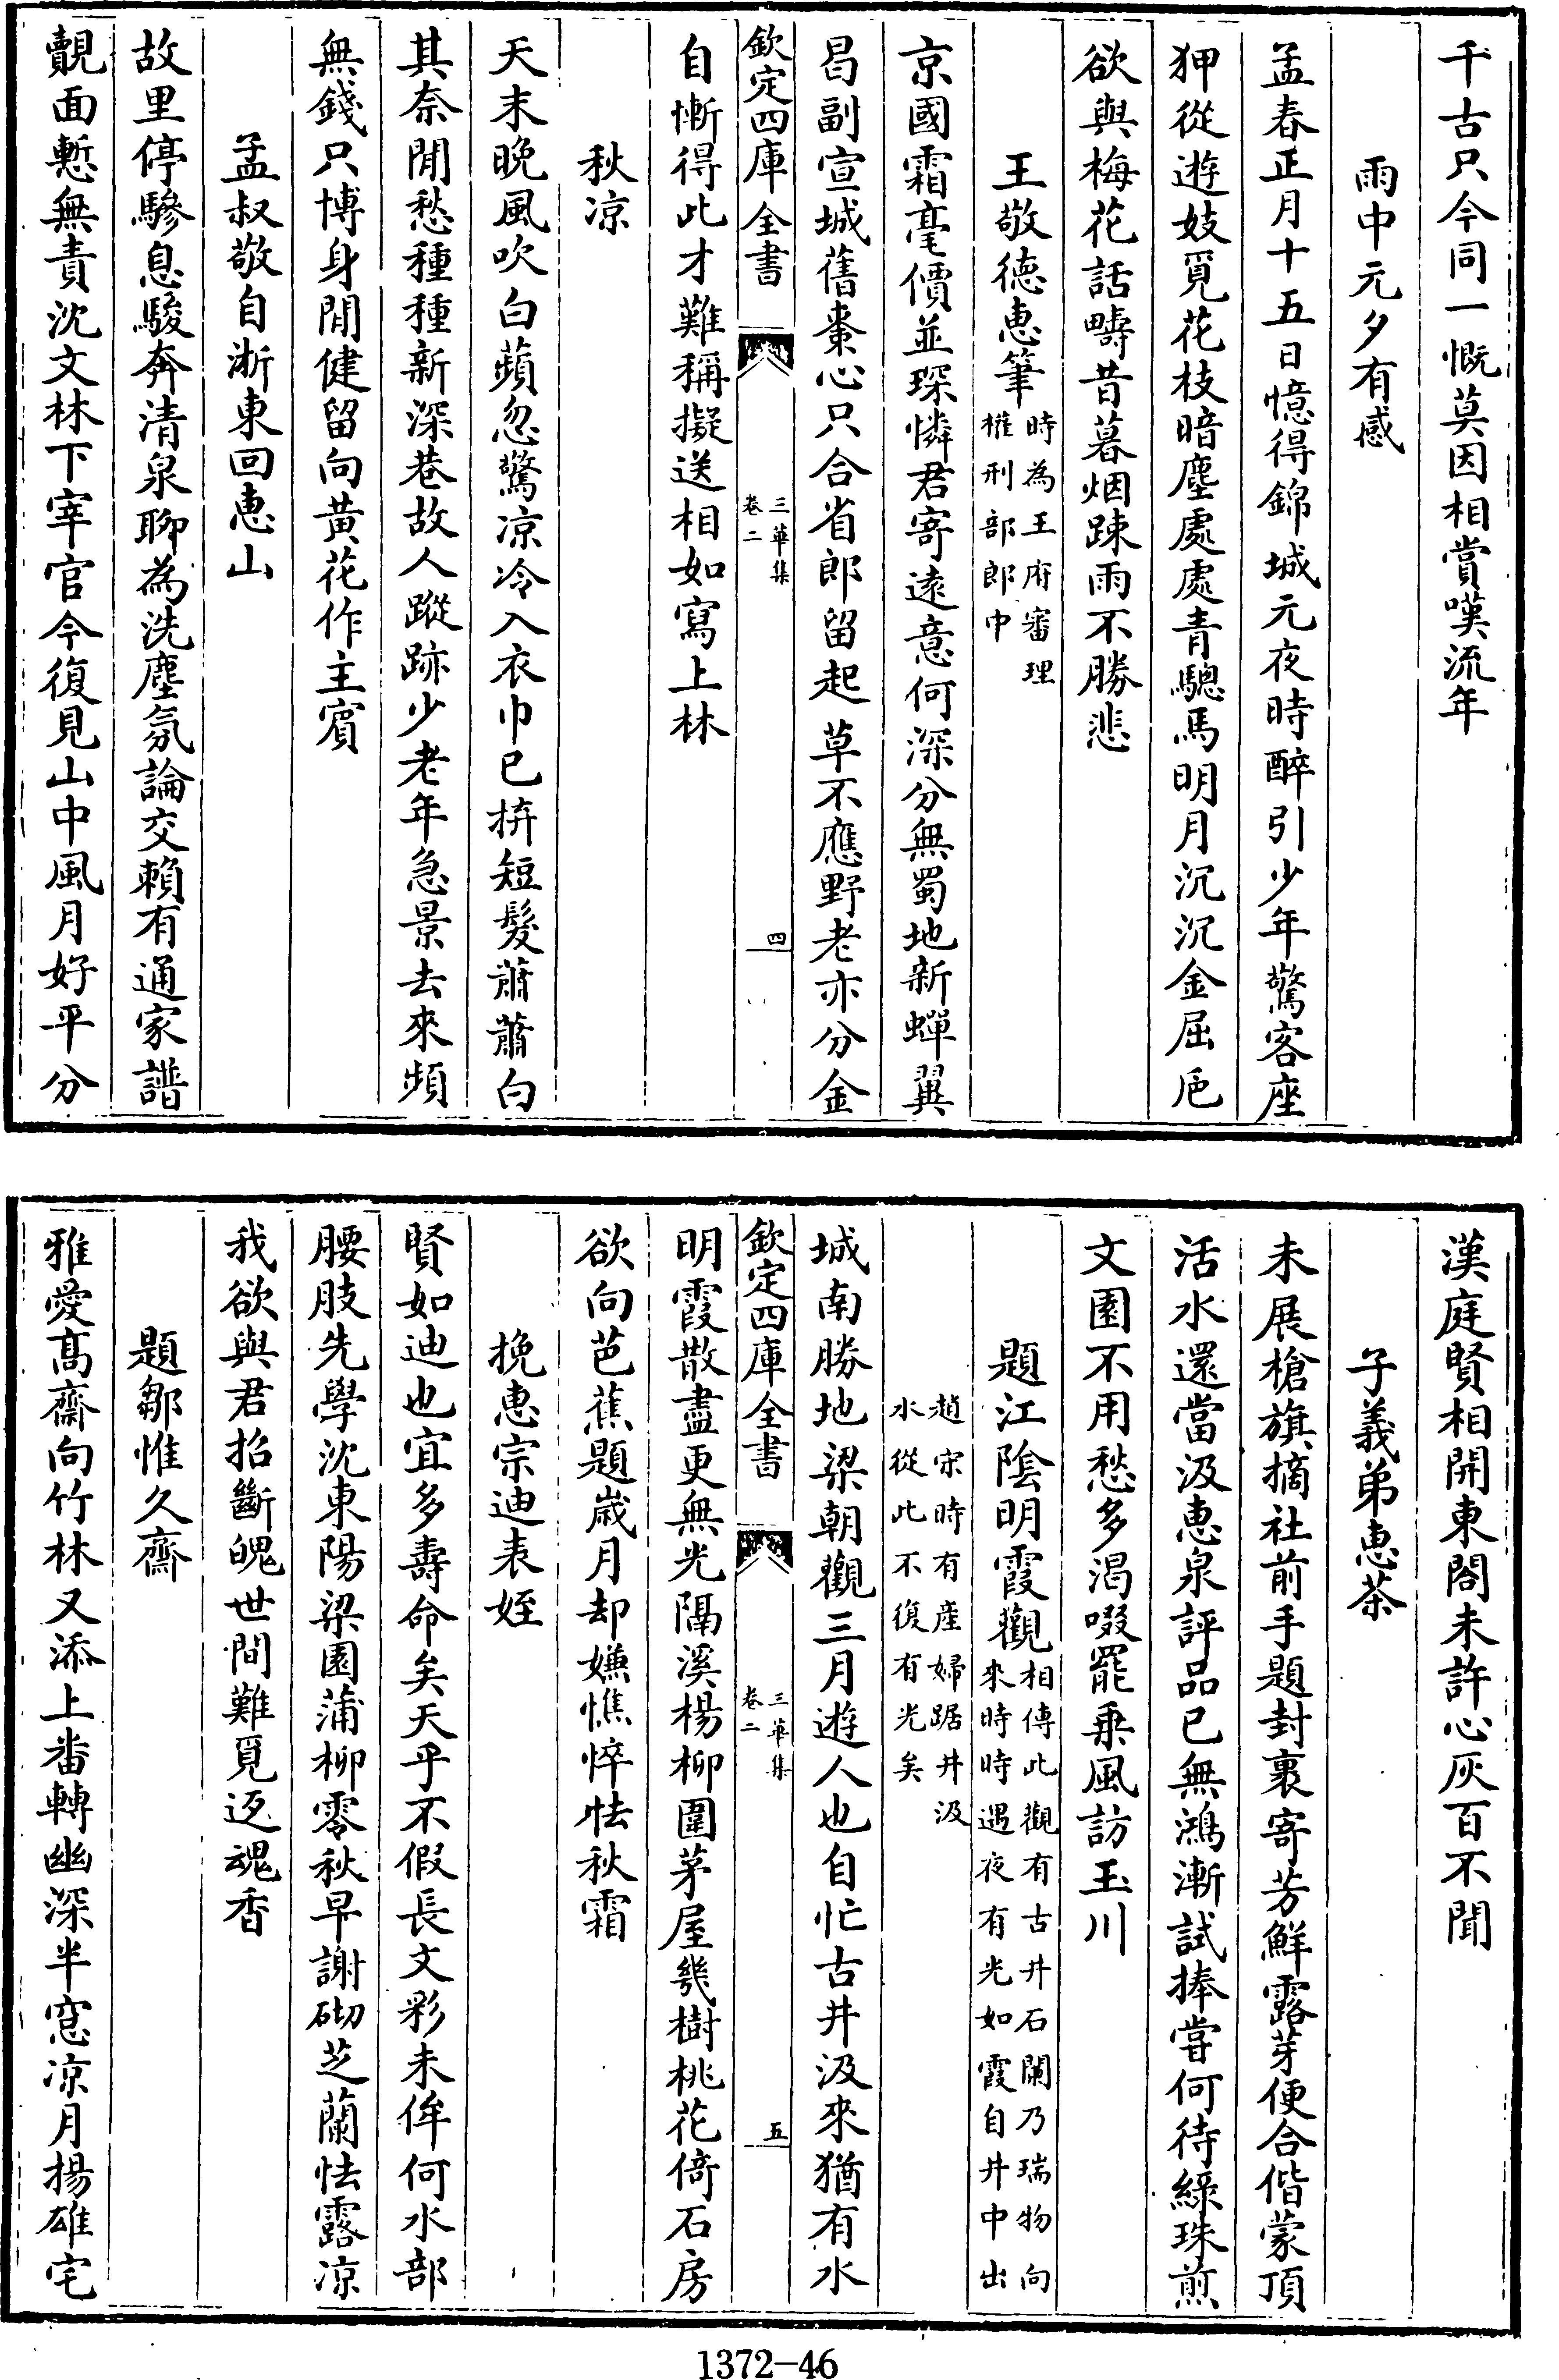 千古只今同一慨莫因相賞嘆流年
雨中元夕有感
孟春正月十五日憶得錦城元夜時醉引少年驚客座
狎從遊妓覓花枝暗塵處處青驄馬明月沉沉金屈巵
欲與梅花話疇昔暮烟踈雨不勝悲
王敬德惠筆時為王府審理
權刑部郎中
京國霜毫價並琛憐君寄遠意何深分無蜀地新蟬翼
曷副宣城舊棗心只合省郎留起草不應野老亦分金
欽定四庫全書
三華集
卷二
四
自慚得此才難稱擬送相如寫上林
秋凉
天末晚風吹白蘋忽驚凉冷入衣巾已拚短髮蕭蕭白
其奈閒愁種種新深巷故人蹤跡少老年急景去來頻
無錢只博身閒健留向黃花作主賓
孟叔敬自淅東回惠山
故里停驂息駿奔清泉聊為洗塵氛論交賴有通家譜
覿面慙無責沈文林下宰官今復見山中風月好平分
漢庭賢相開東閤未許心灰百不聞
子義弟惠茶
未展槍旗摘社前手題封裹寄芳鮮露芽便合偕蒙頂
活水還當汲惠泉評品已無鴻漸試捧甞何待綠珠煎
文園不用愁多渴啜罷乗風訪玉川
題江陰明霞觀相傳此觀有古井石闌乃瑞物向
來時時遇夜有光如霞自井中出
趙宋時有産婦踞井汲
水從此不復有光矣
城南勝地梁朝觀三月遊人也自忙古井汲來猶有水
欽定四庫全書
三華集
卷二
五
明霞散盡更無光隔溪楊柳圍茅屋幾樹桃花倚石房
欲向芭蕉題歲月却嫌憔悴怯秋霜
挽惠宗迪表姪
賢如迪也宜多壽命矣天乎不假長文彩未侔何水部
腰肢先學沈東陽梁園蒲柳零秋早謝砌芝蘭怯露凉
我欲與君招斷魄世間難覓返魂香
題鄒惟久齋
雅愛髙齋向竹林又添上畨轉幽深半窓凉月揚雄宅
1372-46